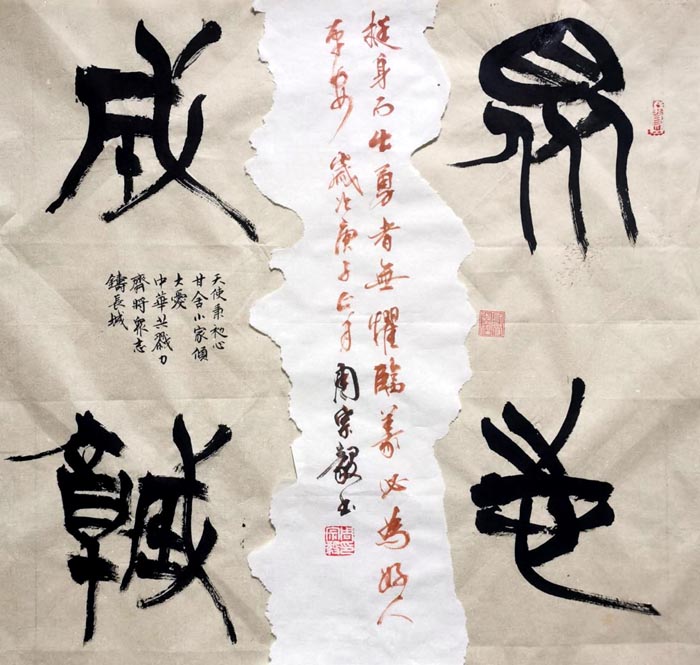 眾志
成城
挺身而出勇者無懼臨義必為好人
平安 歲次庚子正月 周宗毅書
天使秉初心
甘舍小家傾
大愛
中華共戮力
齊時眾志
鑄長城